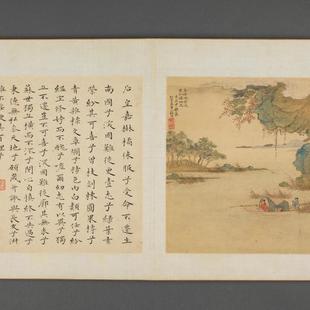 后皇嘉樹橘徠服兮受命不遷生
南國兮深固難徙更壹志兮綠葉素
榮紛其可喜兮曾枝剡棘圓果摶兮
青黃雜糅文章爛兮精色內白類可任兮紛
緼宜修姱而不醜兮嗟爾幼志有以異兮獨
立不遷豈不可喜兮深固難徙廓其無求兮
蘇世獨立橫而不流兮閉心自慎終不失過兮
秉德無私參天地兮願歲并謝與長友兮淑
離不淫梗其有理兮